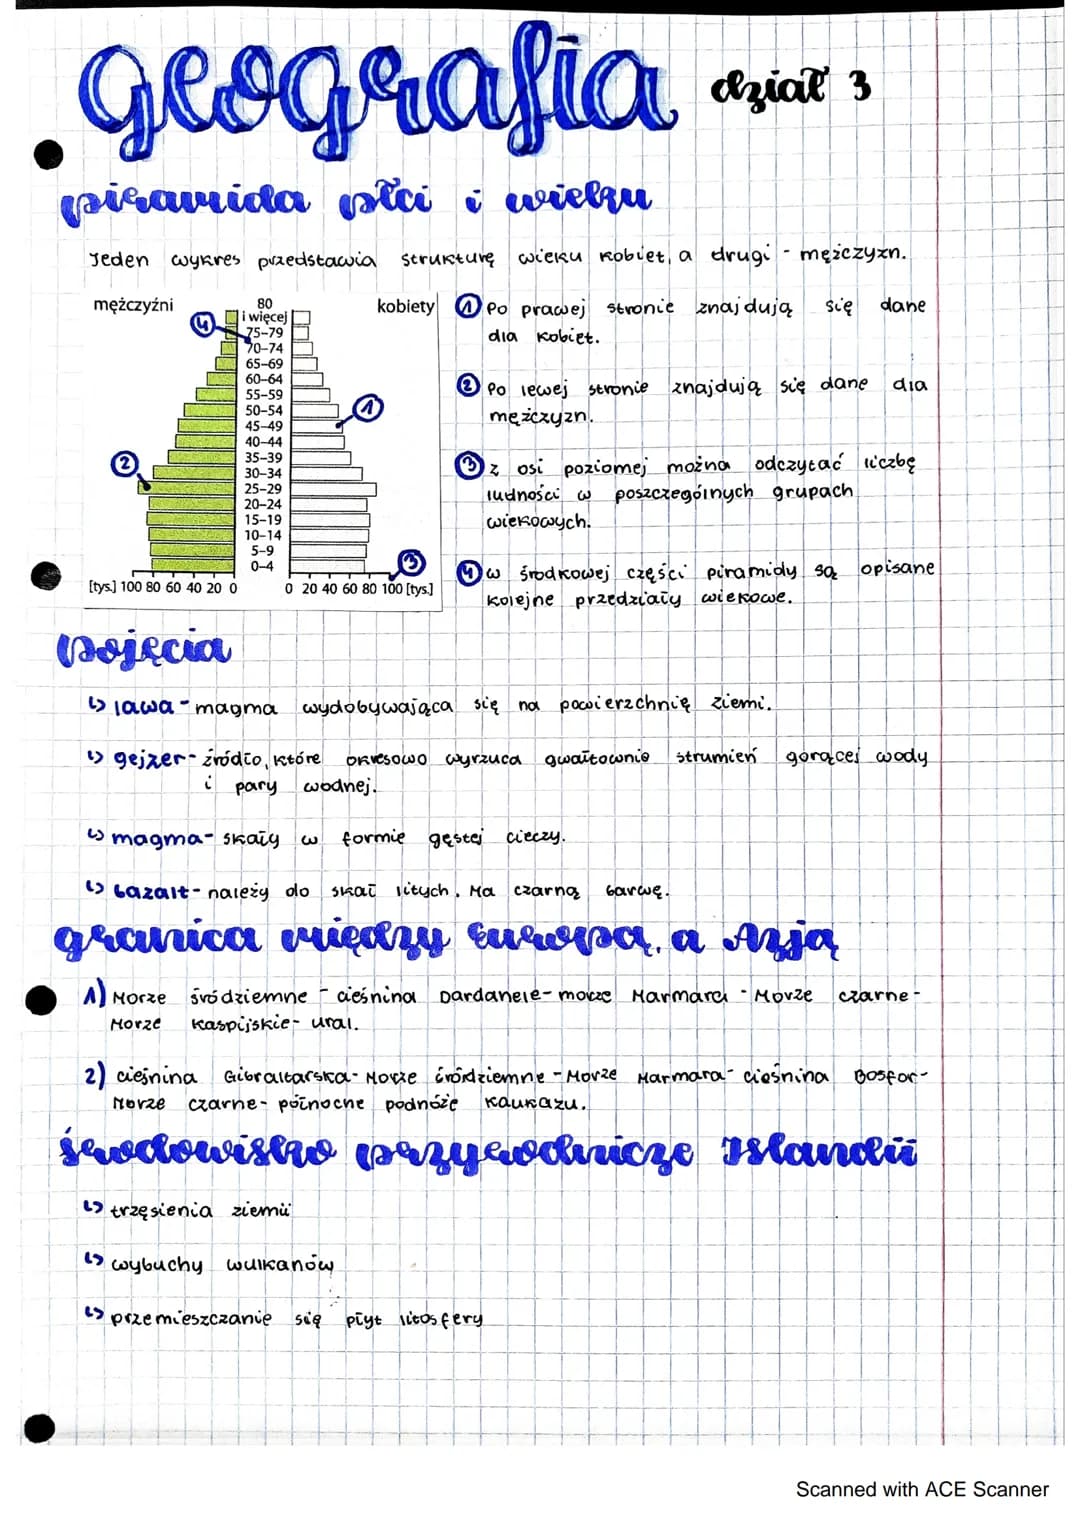 geografia dział 3
piramida płci i wieku
Jeden wykres przedstawia strukturę wieku kobiet, a drugi - mężczyzn.
mężczyźni
80
i więcej
75–79
70–74
65–69
60–64
55–59
50–54
45–49
40–44
35–39
30–34
25–29
20–24
15–19
10–14
5–9
0–4
kobiety
4
1
2
3
[tys.] 100 80 60 40 20 0
0 20 40 60 80 100 [tys.]
1 Po prawej stronie znajdują się dane
dla kobiet.
2 Po lewej stronie znajdują się dane dla
mężczyzn.
3 z osi poziomej można odczytać liczbę
ludności w poszczególnych grupach
wiekowych.
4 w środkowej części piramidy są opisane
kolejne przedziały wiekowe.
pojęcia
↳ lawa - magma wydobywająca się na powierzchnię ziemi.
↳ gejzer - źródło, które okresowo wyrzuca gwałtownie strumień gorącej wody
i pary wodnej.
↳ magma - skały w formie gęstej cieczy.
↳ bazalt - należy do skał litych. Ma czarną barwę.
granica między Europą, a Azją
1) Morze śródziemne - cieśnina Dardanele - morze Marmara - Morze czarne -
Morze kaspijskie - ural.
2) cieśnina Gibraltarska - Morze śródziemne - Morze Marmara - cieśnina Bosfor -
Morze czarne - północne podnóże kaukazu.
środowisko przyrodnicze Islandii
↳ trzęsienia ziemi
↳ wybuchy wulkanów
↳ przemieszczanie się płyt litosfery
Scanned with ACE Scanner